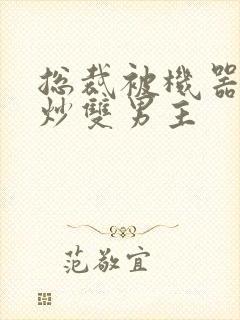 总裁被機器
炒雙男主
范敬宜